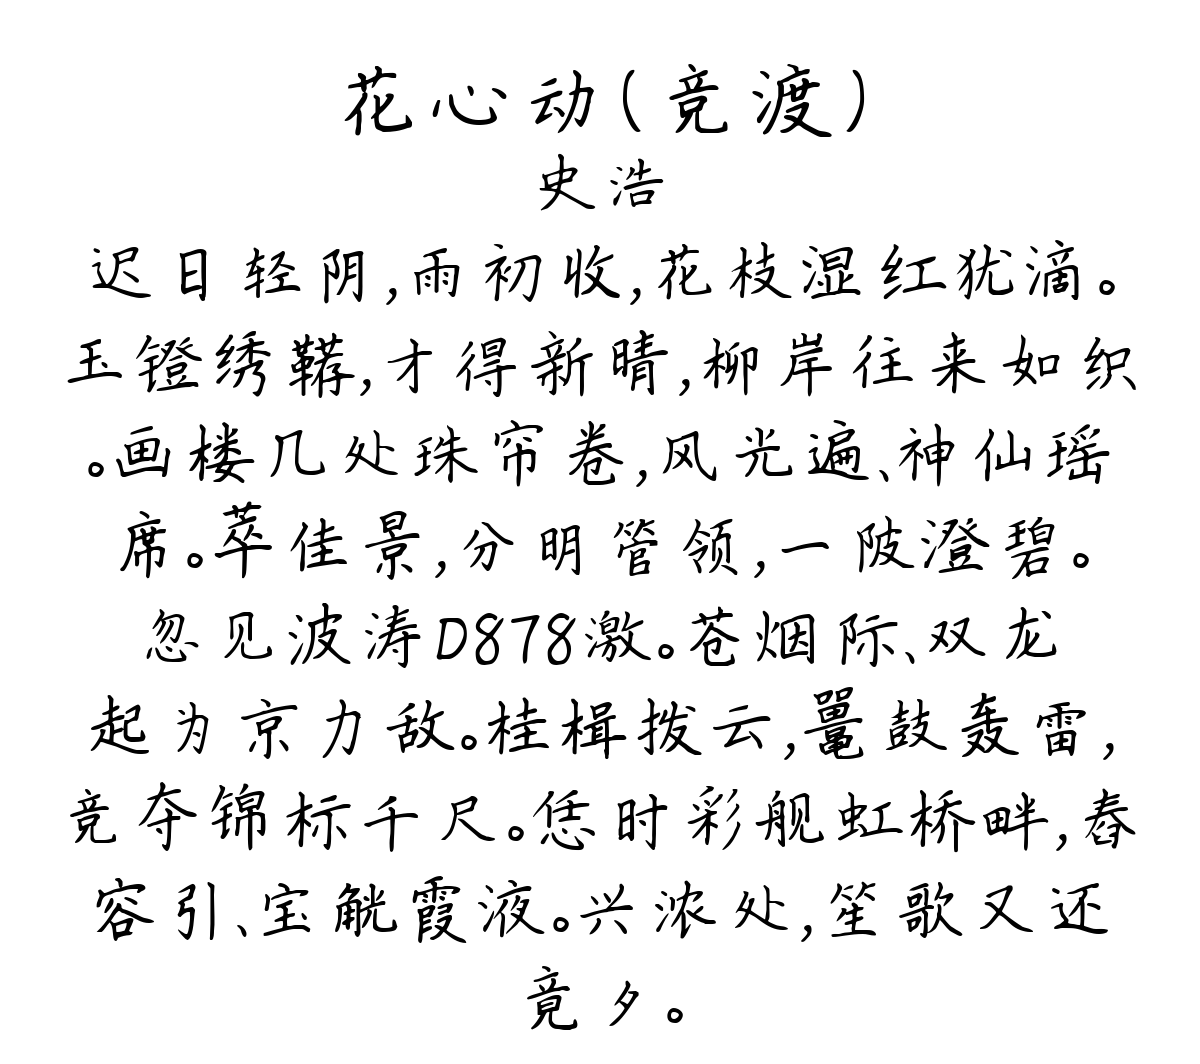 花心动(竞渡)
史浩
迟日轻阴,雨初收,花枝湿红犹滴。
玉镫绣鞯,才得新晴,柳岸往来如织
。画楼几处珠帘卷,风光遍、神仙瑶
席。萃佳景,分明管领,一陂澄碧。
忽见波涛D878激。苍烟际、双龙
起为京力敌。桂楫拨云,鼍鼓轰雷,
竞夺锦标千尺。恁时彩舰虹桥畔,舂
容引、宝觥霞液。兴浓处,笙歌又还
竟夕。